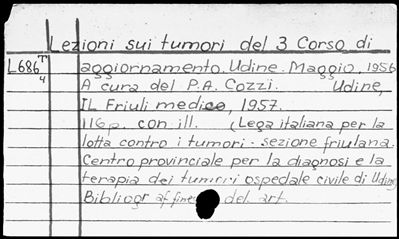 Lezioni sui tumori del 3 Corso di
L686T aggiornamento. Udine. Maggio, 1956
4 A cura del P.A. Cozzi. Udine,
IL Friuli medico, 1957.
116p. con ill. (Lega italiana per la
lotta contro i tumori - sezione friulana.
Centro provinciale per la diagnosi e la
terapia dei tumori ospedale civile di Udine
Bibliogr af fine del art.